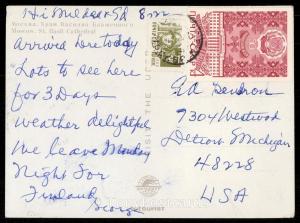 Hi Mildred + Ed
Москва. Храм Василия Блаженного
Moscow. St. Basil Cathedral
Arrived here today
"Lots to see here
for 3 Days
Weather delightful
We leave Monday
Night For
Finland
George
Ed Dendron
7304 Westwood
Detroit Michigan
48228
USA
INTOURIST